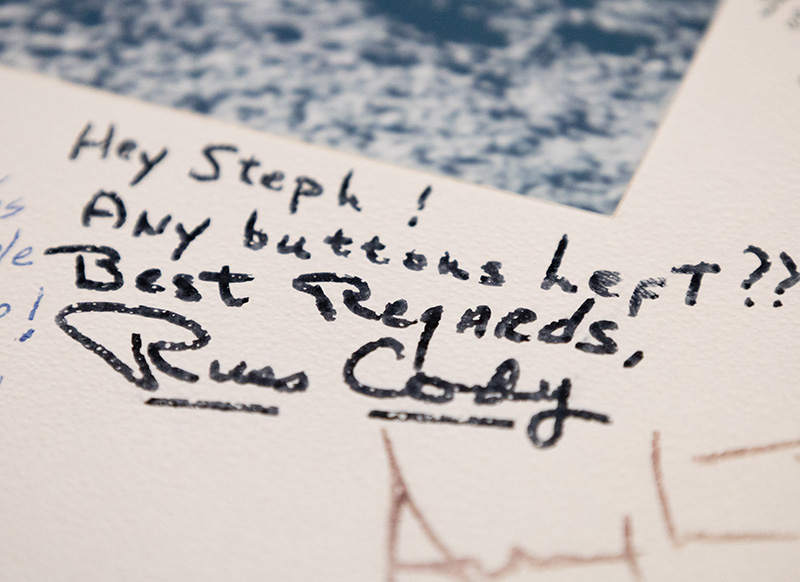 Hey Steph!
Any buttons left??
Best Regards,
Russ Cody